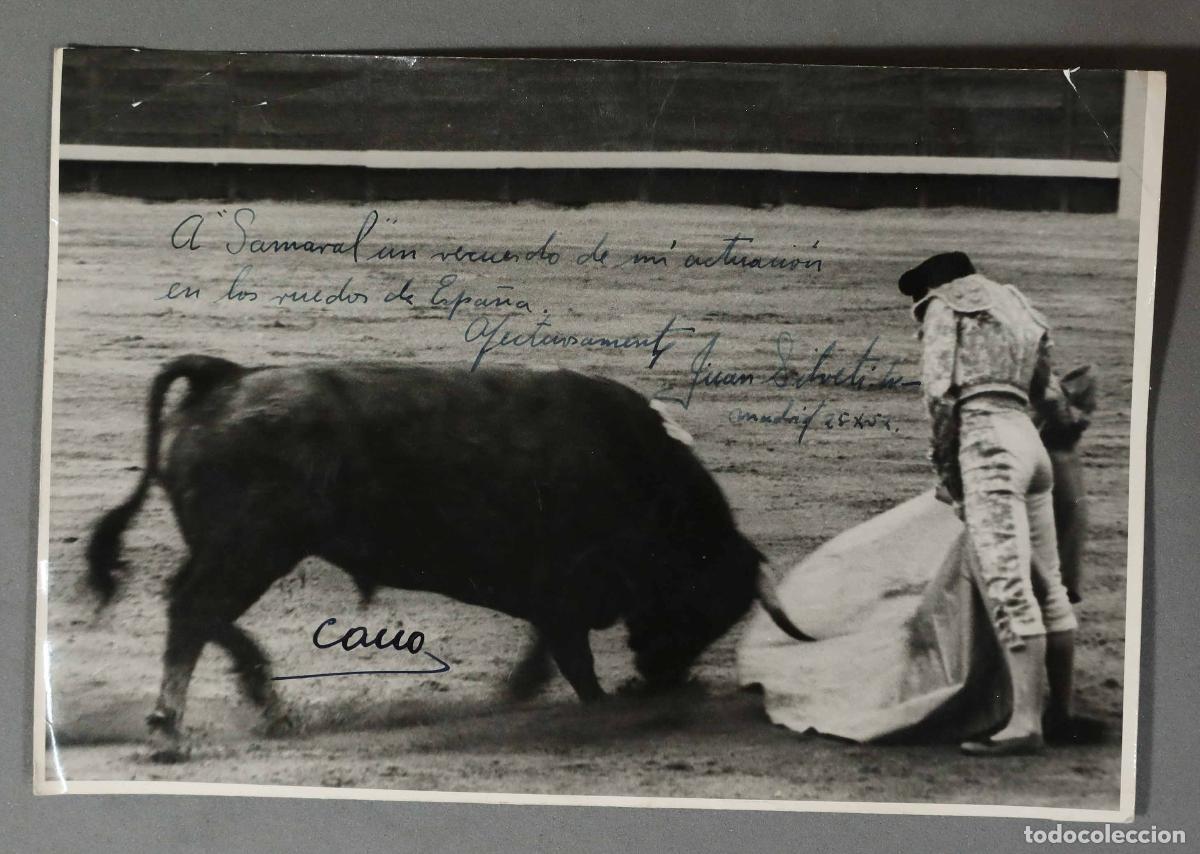 A "Samaral" un recuerdo de mi actuación
en los ruedos de España.
Afectuosamente,
Juan Silveti
Madrid 25 X 52.
Cano
todocoleccion